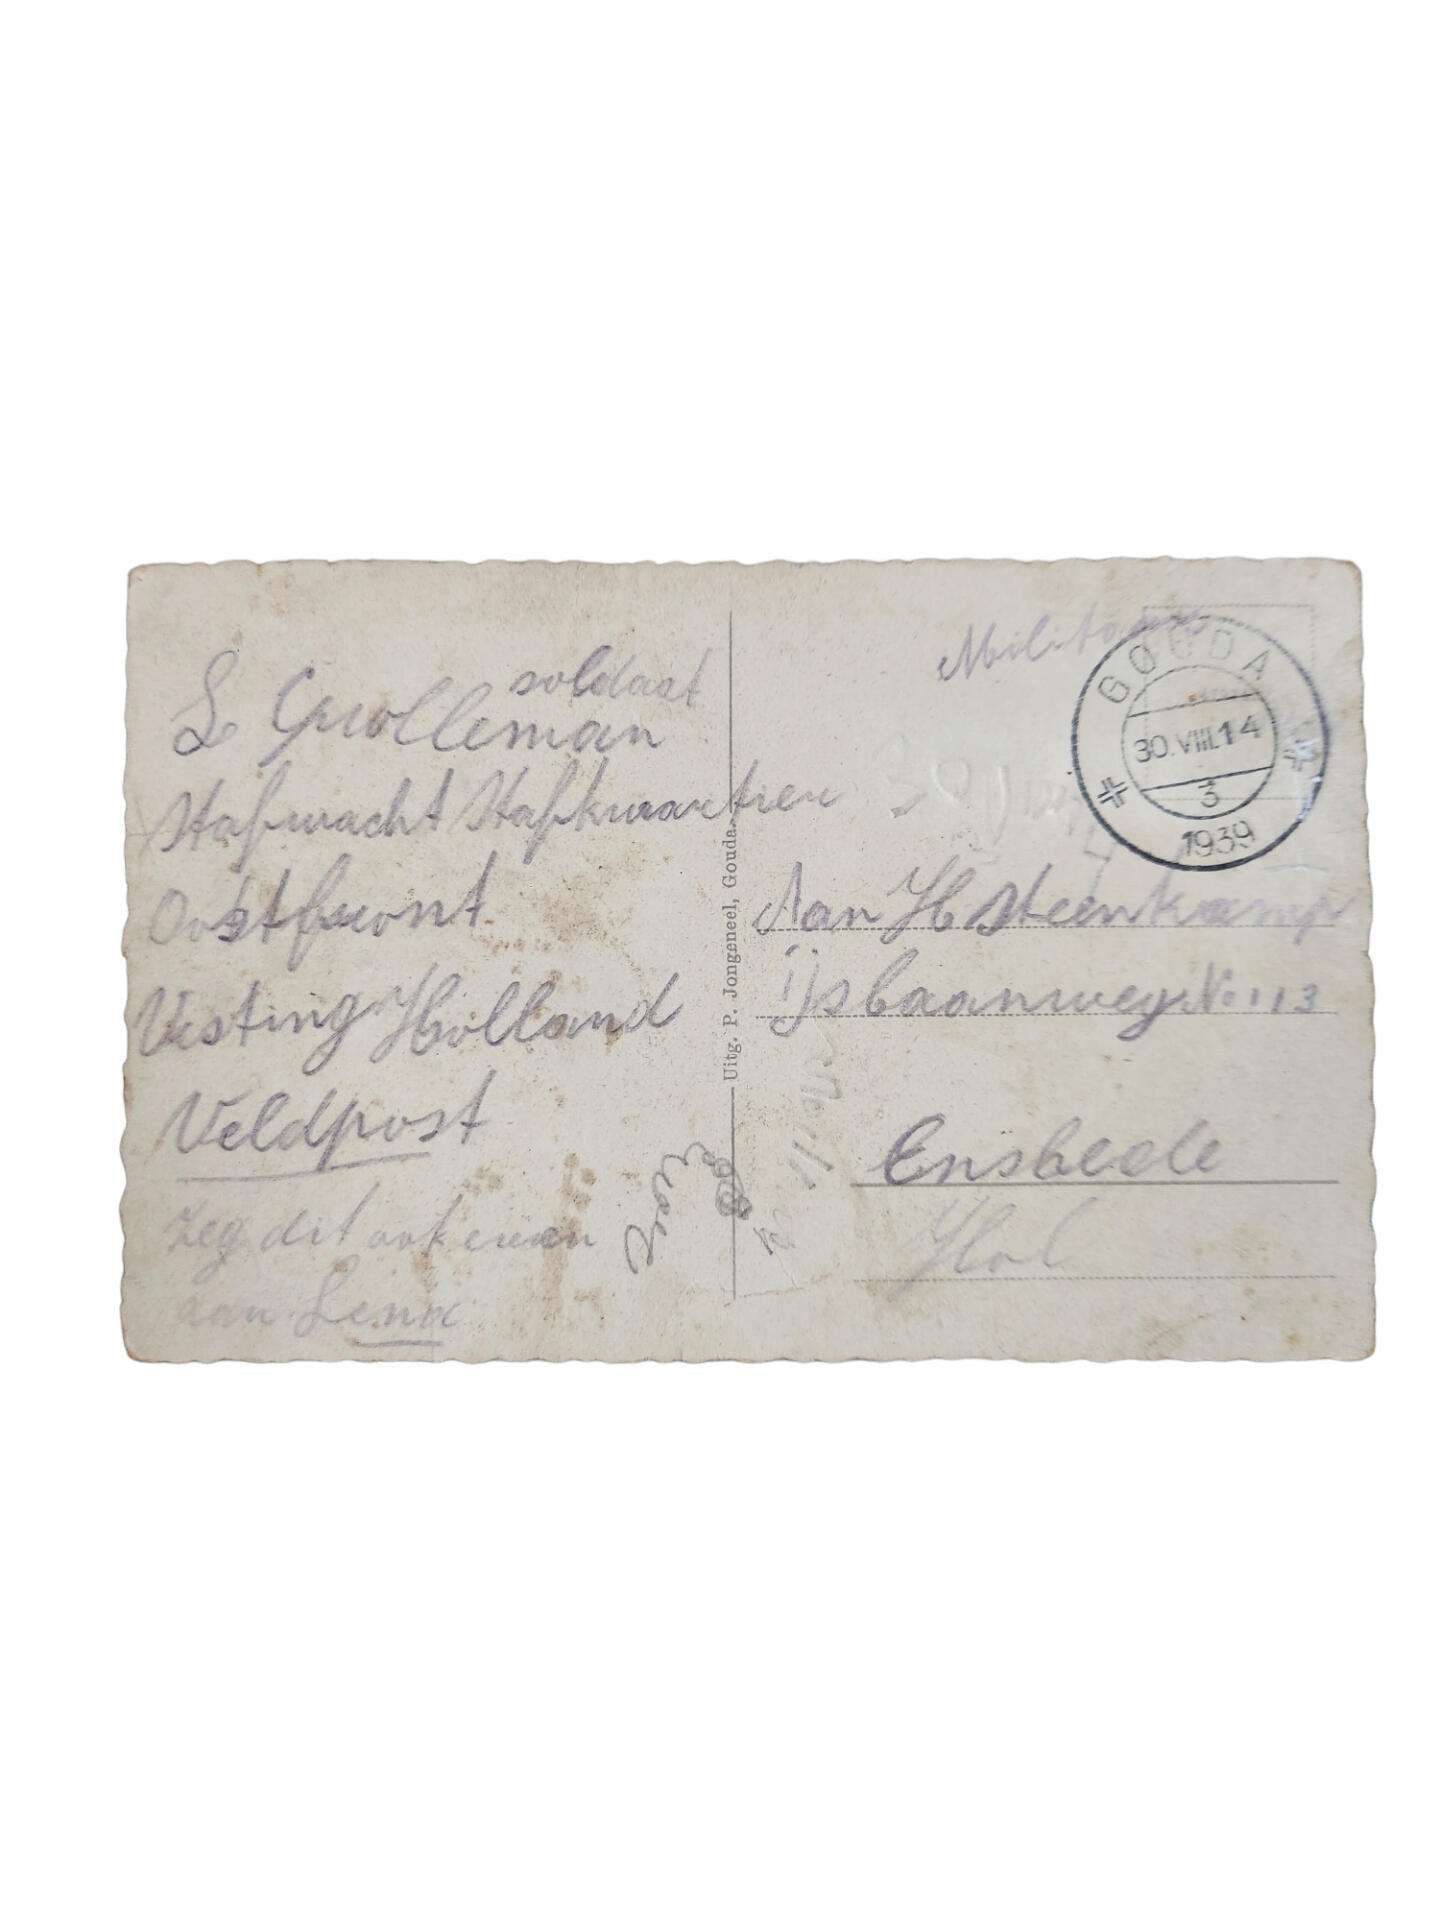 soldaat
Grolleman
Stafwacht Stafkwartier
Oostfront
Vesting Holland
Veldpost
Zeg dit ook even
aan Lena
Uitg. P. Jongeneel, Gouda.
GOUDA
30.VIII.14
3
1939
Aan H Steenkamp
IJsbaanweg No 113
Enshede
Hol